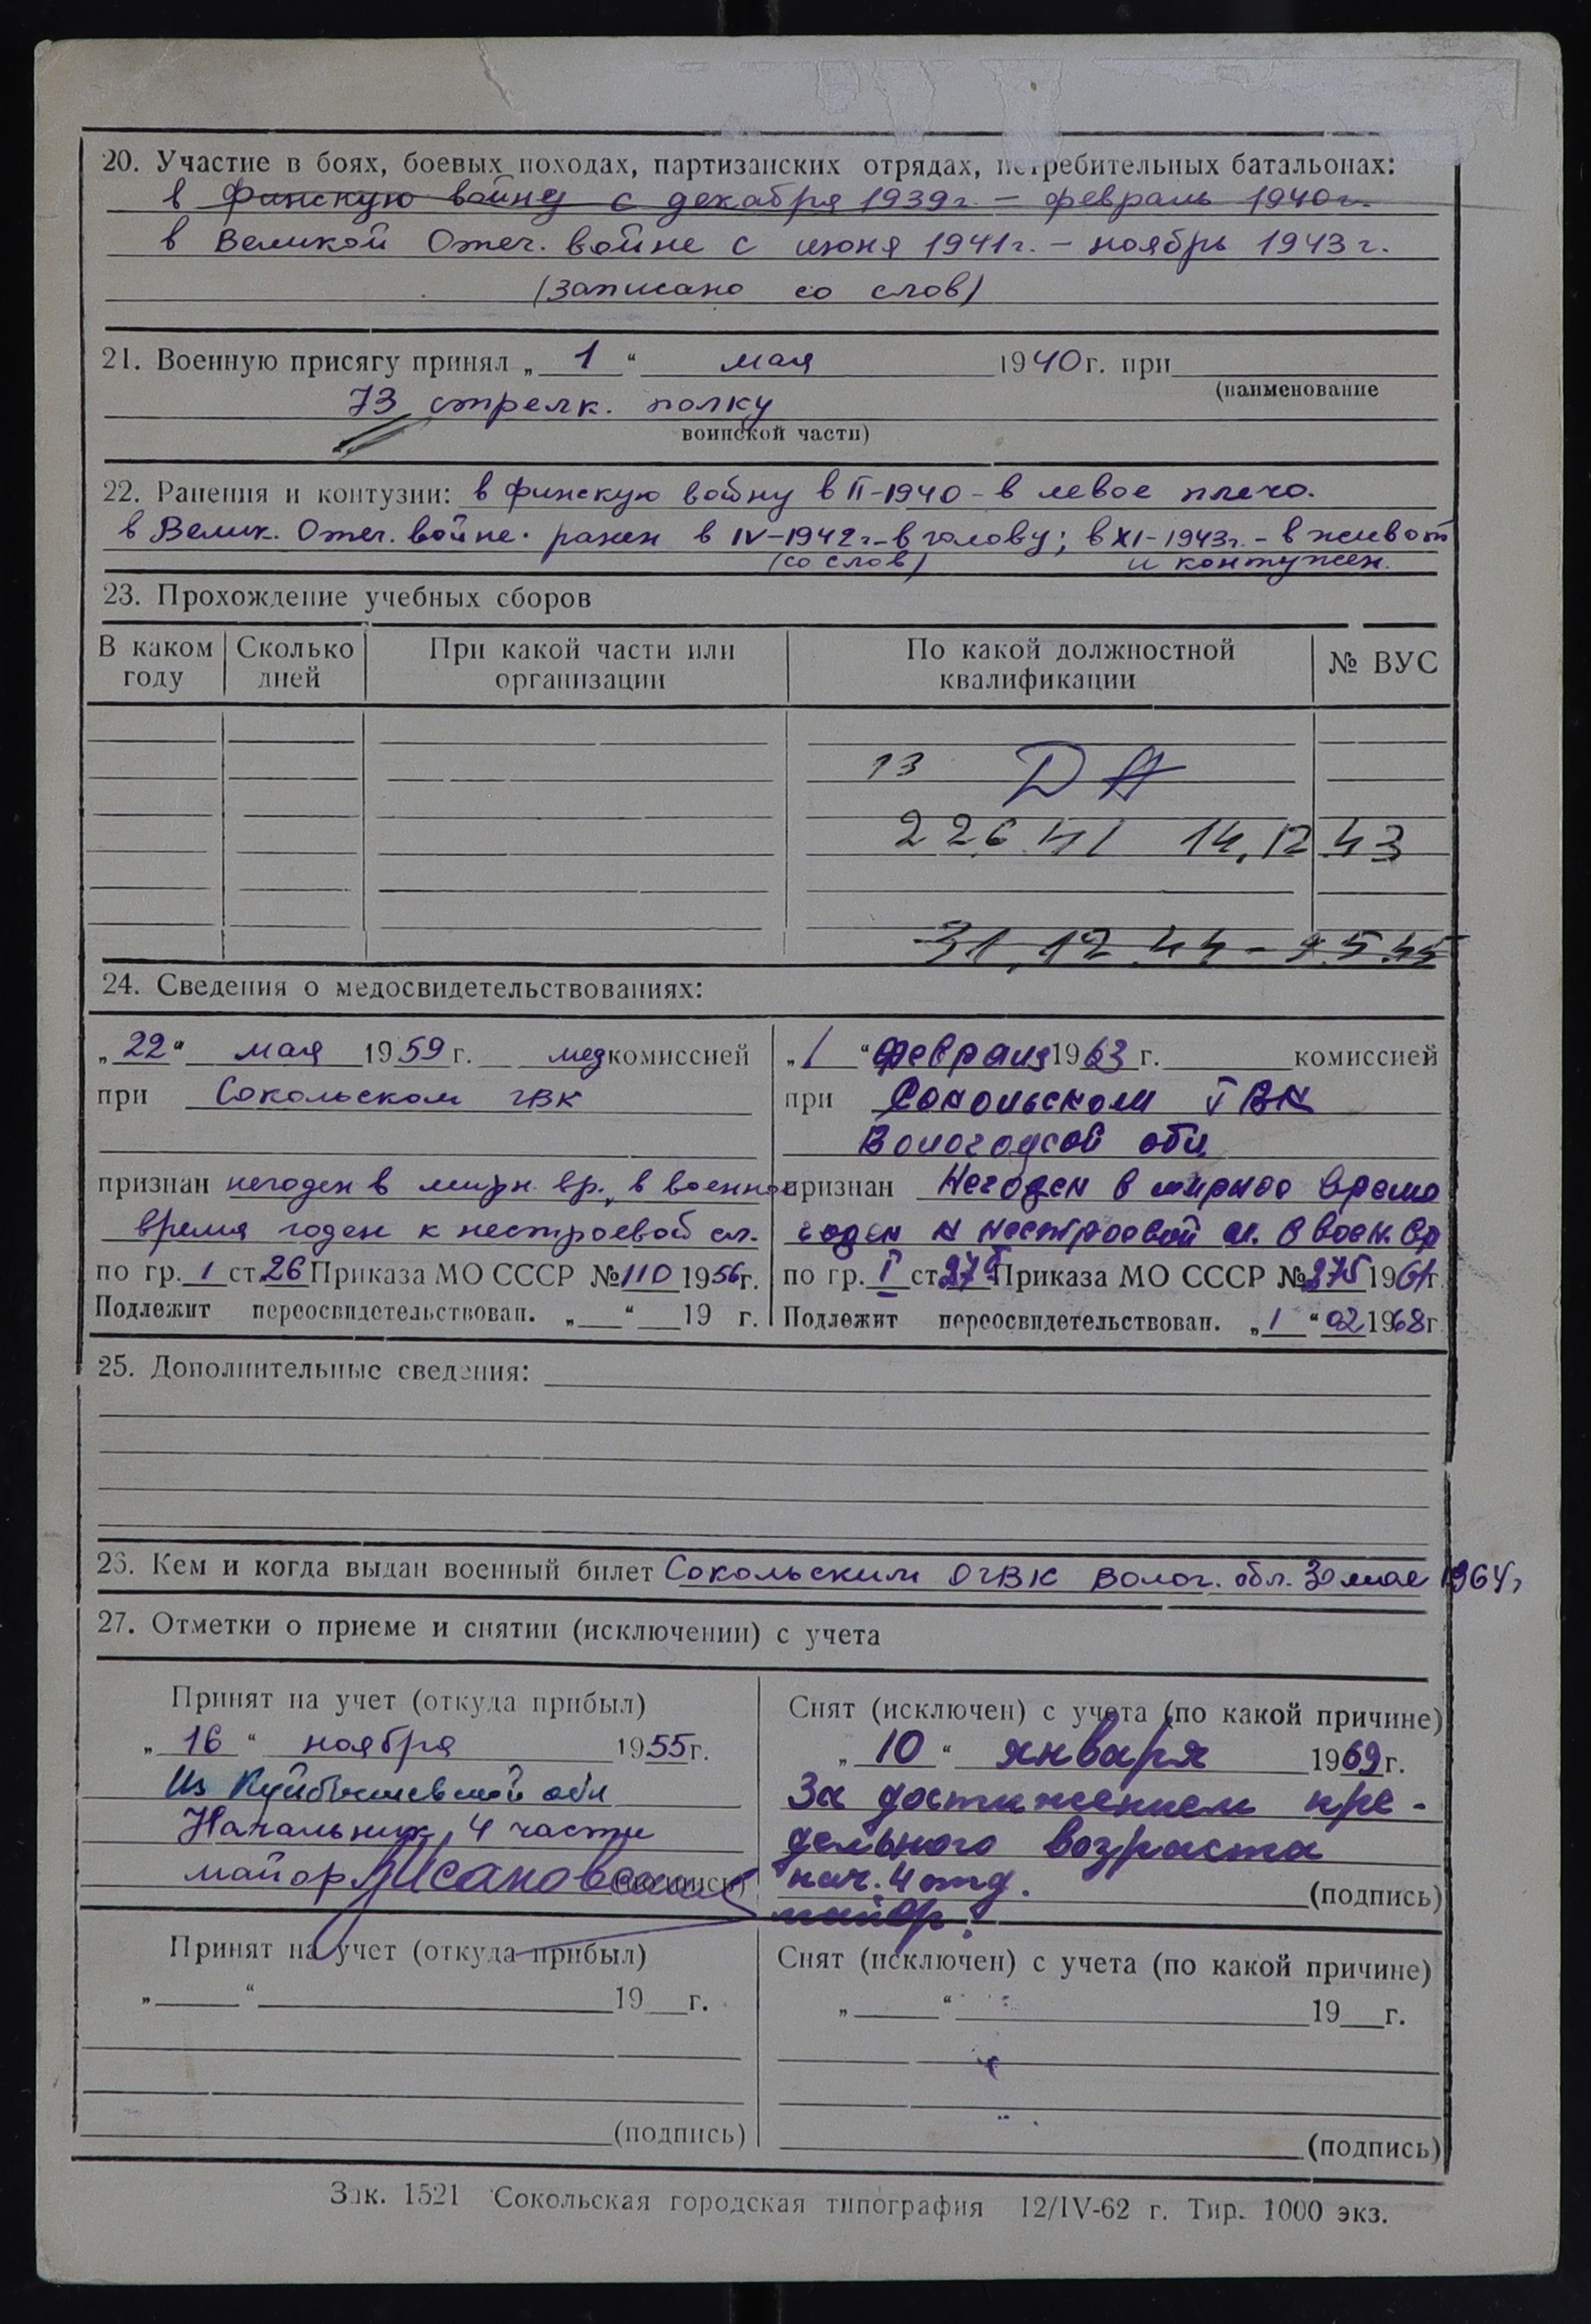 20. Участие в боях, боевых походах, партизанских отрядах, истребительных батальонах:
в Финскую войну с декабря 1939г. – февраль 1940г.
в Великой Отеч. войне с июня 1941г. – ноябрь 1943г.
(записано со слов)
21. Военную присягу принял „ 1 “ мая 1940 г. при
(наименование
73 стрелк. полку
воинской части)
22. Ранения и контузии: в финскую войну в II-1940 - в левое плечо.
в Велик. Отеч. войне. ранен в IV-1942г-в голову; в XI-1943г.- в живот
(со слов) и контужен.
23. Прохождение учебных сборов
В каком году Сколько дней При какой части или организации По какой должностной квалификации № ВУС
13 ДА
22 6 41 14.12 43
31.12.44 - 9.5.45
24. Сведения о медосвидетельствованиях:
„22“ мая 1959 г. медкомиссией
при Сокольском ГВК
признан негоден в мирн. вр., в военное
время годен к нестроевой сл.
по гр. 1 ст 26 Приказа МО СССР №110 1956г.
Подлежит переосвидетельствован. „ “ 19 г.
„1 “ февраля 1963 г. комиссией
при Сокольском ГВК
Вологодской обл.
признан Негоден в мирное время
годен к нестроевой сл. в воен. вр
по гр. I ст Приказа МО СССР №275 1961г
Подлежит переосвидетельствован. „1 “ 02 1968г
25. Дополнительные сведения:
26. Кем и когда выдан военный билет Сокольским ОГВК Волог. обл. 30 мая 1964г
27. Отметки о приеме и снятии (исключении) с учета
Принят на учет (откуда прибыл)
„ 16 “ ноября 1955г.
Из Куйбышевской обл
Начальник 4 части
майор (подпись)
Снят (исключен) с учета (по какой причине)
„ 10 “ января 1969г.
За достижением пре-
дельного возраста
нач. 4 отд.
(подпись)
майор
Принят на учет (откуда прибыл)
„ “ 19 г.
(подпись)
Снят (исключен) с учета (по какой причине)
„ “ 19 г.
(подпись)
Зак. 1521 Сокольская городская типография 12/IV-62 г. Тир. 1000 экз.